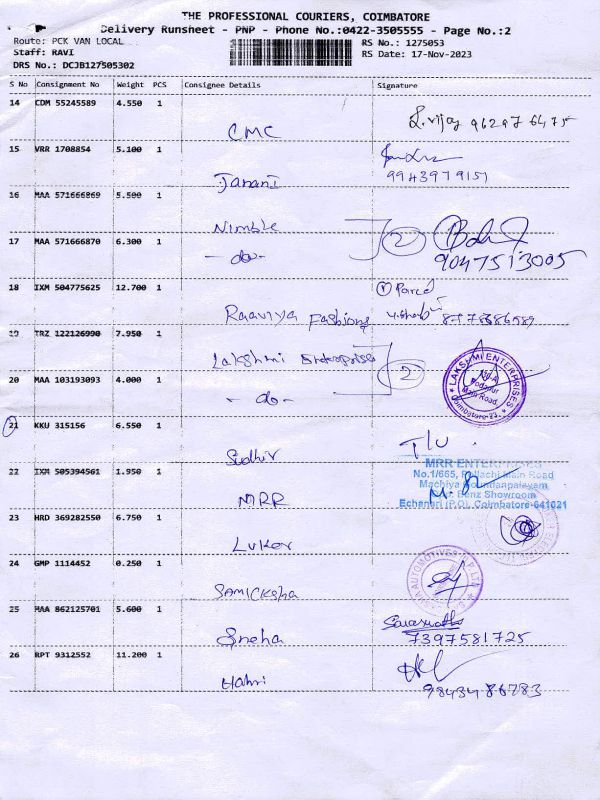 THE PROFESSIONAL COURIERS, COIMBATORE
Delivery Runsheet - PNP - Phone No.:0422-3505555 - Page No.:2
Route: PCK VAN LOCAL
RS No.: 1275053
Staff: RAVI
RS Date: 17-Nov-2023
DRS No.: DCJB127505302
S No Consignment No Weight PCS Consignee Details Signature
14 CDM 55245589 4.550 1
CMC
15 VRR 1708854 5.100 1
Janani
9943979151
16 MAA 571666869 5.500 1
Nimble
17 MAA 571666870 6.300 1
- do -
2
9047513005
18 IXM 504775625 12.700 1
Raaviya Fashions
1 Parcel
19 TRZ 122126990 7.950 1
Lakshmi Enterprises
20 MAA 103193093 4.000 1
- do -
2
LAKSHMI ENTERPRISES
Podanur
Main Road,
Coimbatore-23.
21 KKU 315156 6.550 1
Sudhir
T/U
22 IXM 505394561 1.950 1
MRR
MRR ENTERPRISES
No.1/665, Pollachi Main Road
Machiya Goundanpalayam
Benz Showroom
Echanari (P.O), Coimbatore-641021
23 HRD 369282550 6.750 1
Luker
24 GMP 1114452 0.250 1
SAMICKSHA
25 MAA 862125701 5.600 1
Sneha
Saraswathi
7397581725
26 RPT 9312552 11.200 1
Hahri
9843486783